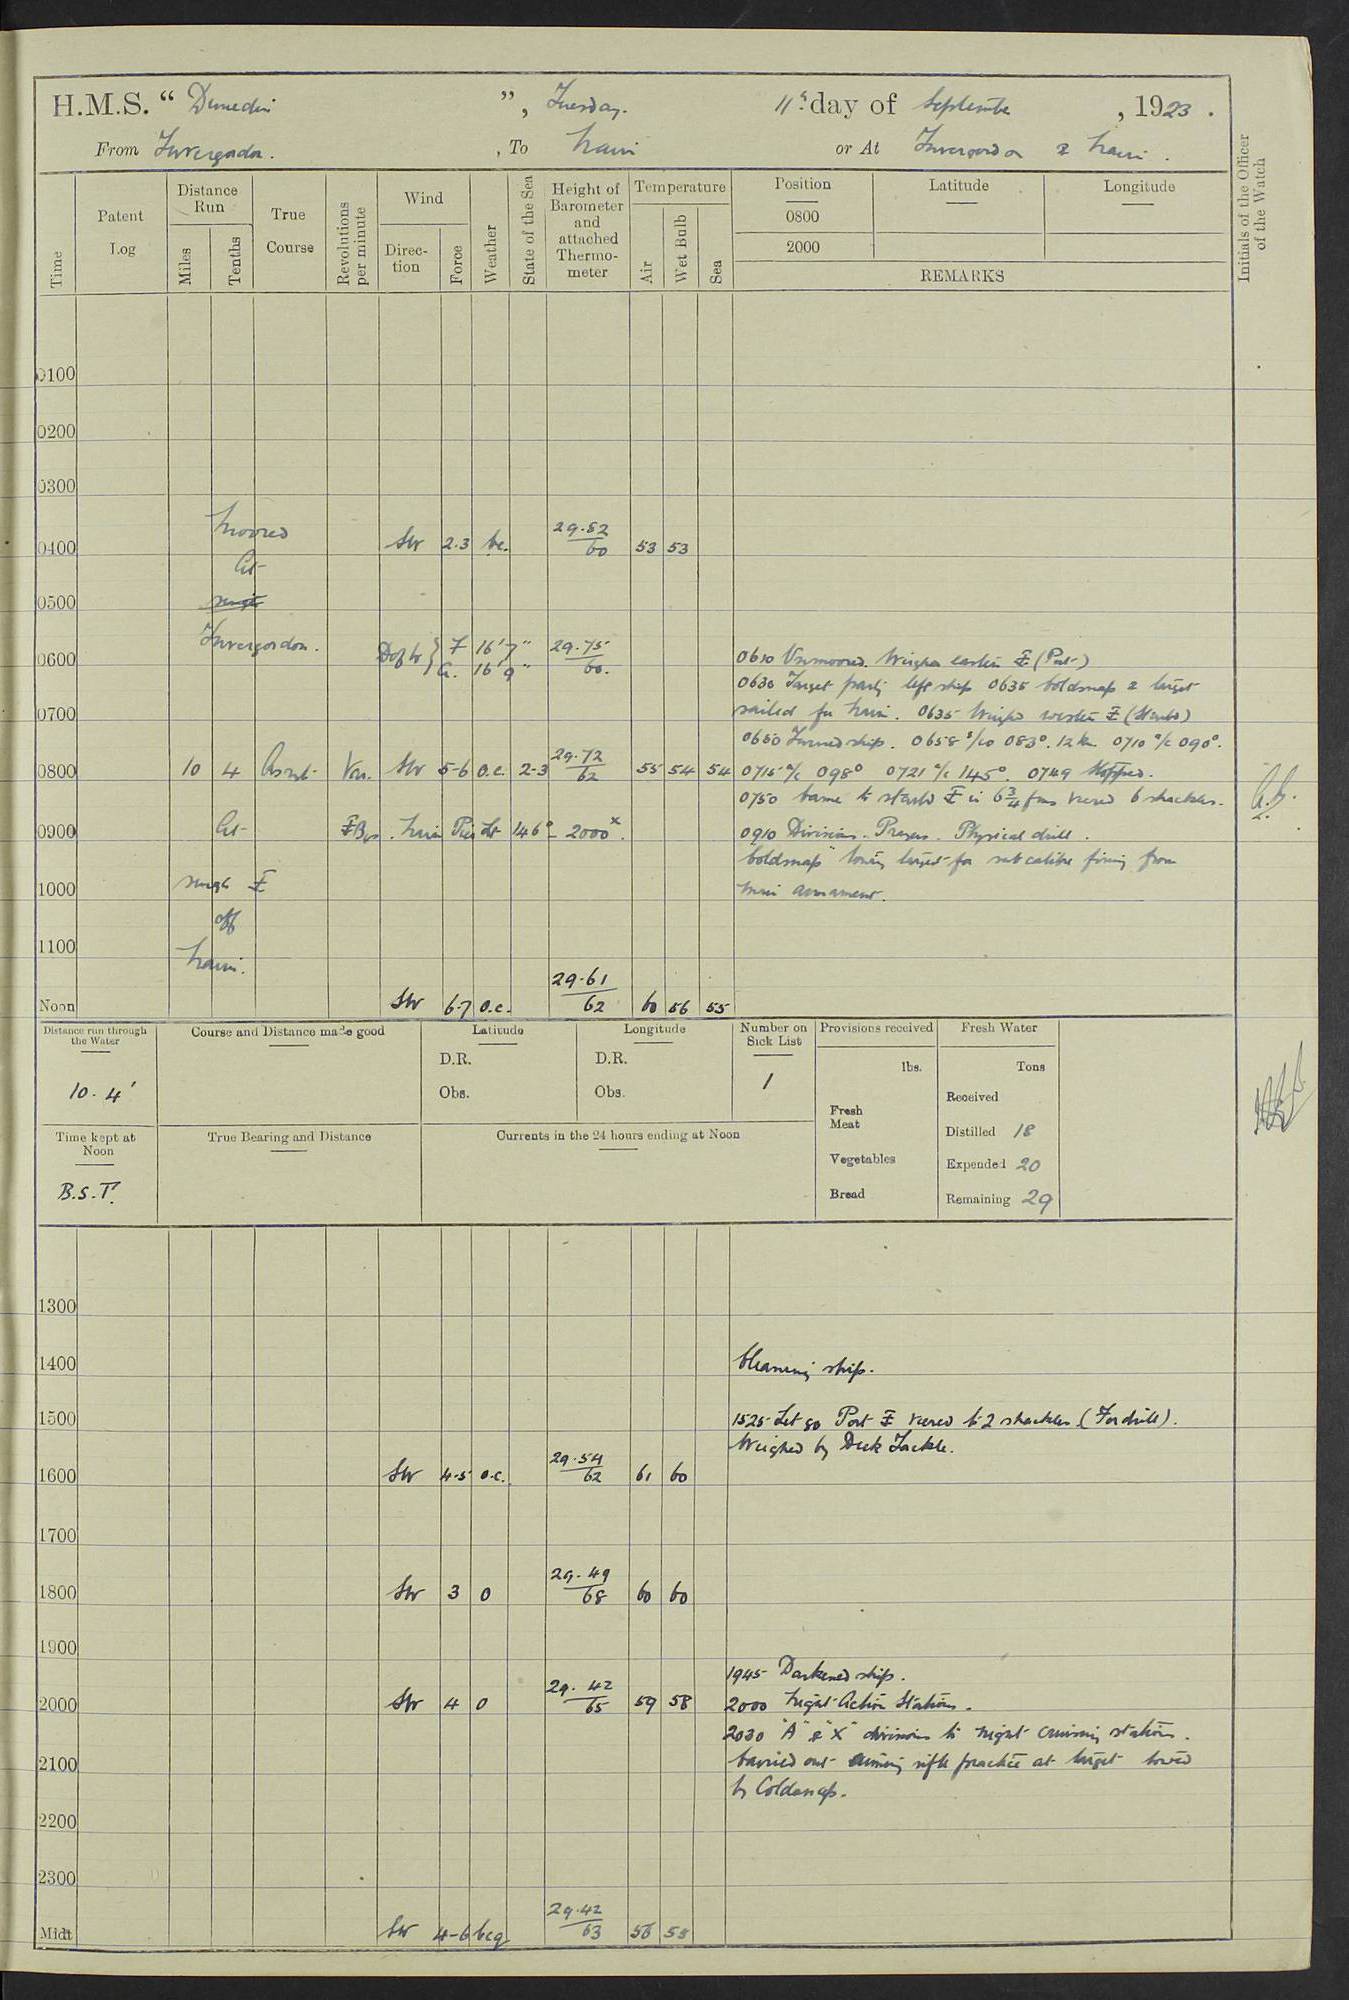 H.M.S. “ Dunedin ”, Tuesday. 11th day of September, 1923.
From Invergordon. , To Nairn or At Invergordon & Nairn.
Time
Patent Log
Distance Run
Miles
Tenths
True Course
Revolutions per minute
Wind
Direction
Force
Weather
State of the Sea
Height of Barometer and attached Thermometer
Temperature
Air
Wet Bulb
Sea
Position
0800
2000
Latitude
Longitude
REMARKS
Initials of the Officer of the Watch
0100
0200
0300
Moored
0400 SW 2.3 bc. 29.82/60 53 53
At
0500 single
Invergordon.
Depth { F 16' 7" 29.75/60.
A. 16' 9"
0600 0610 Unmoored. Weighed eastern ⚓ (Port)
0630 Target party left ship 0635 Coldsnap & target
0700 sailed for Nairn. 0635 Weighed western ⚓ (Starbd)
0650 Turned ship. 0658 s/co 083°. 12 kn. 0710 a/c 090°.
0800 10 4 As reqt. Var. SW 5-6 o.c. 2-3 29.72/62 55 54 54 0715 a/c 098° 0721 a/c 145°. 0749 Stopped.
0750 Came to starbd ⚓ in 6¾ fms veered 6 shackles.
0900 At ⚓ Bgs. Nairn Pier Lt 146° - 2000x. 0910 Divisions. Prayers. Physical drill.
"Coldsnap" towing target for sub calibre firing from
1000 single ⚓ main armament.
off
1100
Nairn.
Noon SW 6-7 o.c. 29.61/62 60 56 55
Distance run through the Water
10.4'
Course and Distance made good
Latitude
D.R.
Obs.
Longitude
D.R.
Obs.
Number on Sick List
1
Provisions received
lbs.
Fresh Meat
Vegetables
Bread
Fresh Water
Tons
Received
Distilled 18
Expended 20
Remaining 29
Time kept at Noon
B.S.T.
True Bearing and Distance
Currents in the 24 hours ending at Noon
1300
1400 Cleaning ship.
1500 1525 Let go Port ⚓ veered to 2 shackles. (For drill).
Weighed by Deck Tackle.
1600 SW 4-5 o.c. 29.54/62 61 60
1700
1800 SW 3 o 29.49/68 60 60
1900
1945 Darkened ship.
2000 SW 4 o 29.42/65 59 58 2000 Night Action Stations.
2030 "A" & "X" divisions to night cruising stations.
2100 Carried out aiming rifle practice at target towed
by Coldsnap.
2200
2300
Midt SW 4-6 bcq 29.42/63 56 55